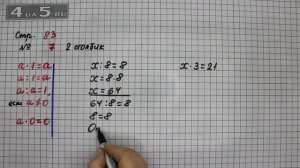 4 АО 5 RU
Стр. 83
№ 7 2 столбик
a·1=a
1·a=a
a:a=1,
если a≠0
a·0=0
x:8=8
x=8·8
x=64
64:8=8
8=8
От
x·3=21